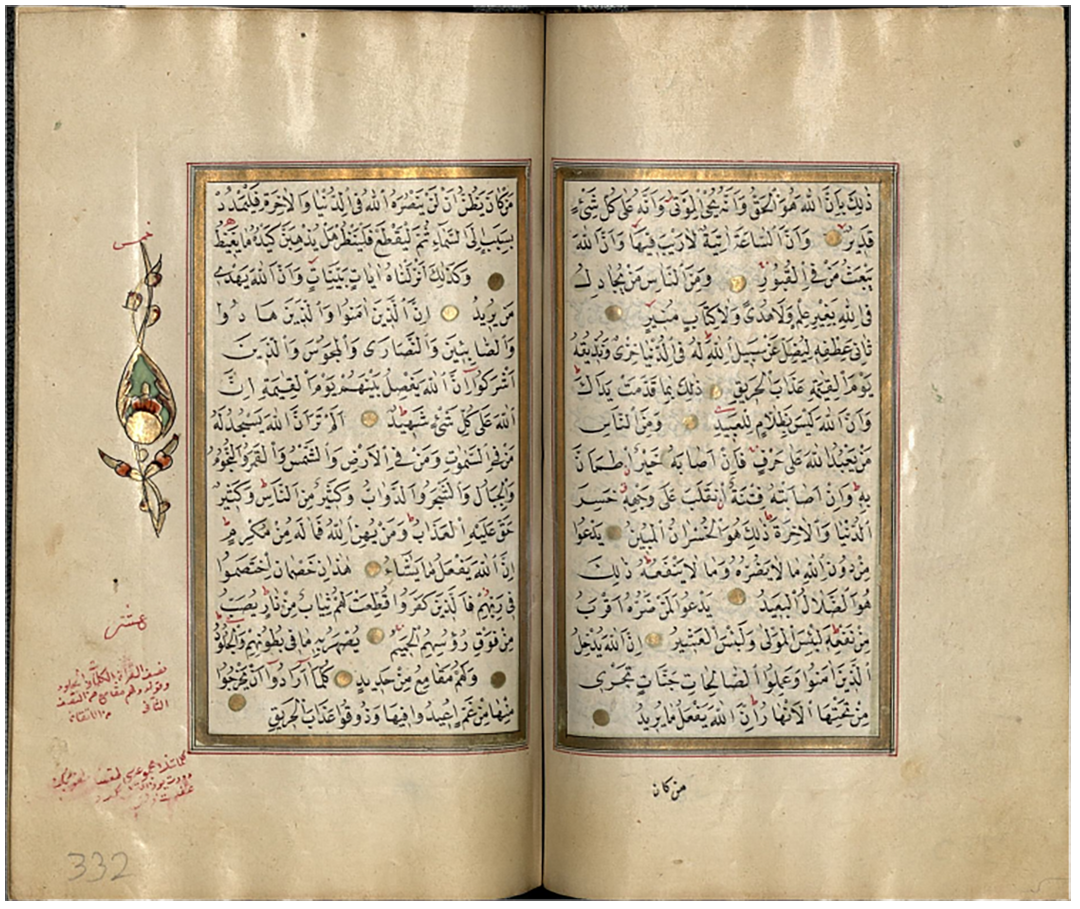 ذٰلِكَ بِاَنَّ اللّٰهَ هُوَ الْحَقُّ وَاَنَّهُ يُحْيِ الْمَوْتٰى وَاَنَّهُ عَلٰى كُلِّ شَيْءٍ
قَدِيرٌ وَاَنَّ السَّاعَةَ اٰتِيَةٌ لَا رَيْبَ فِيهَا وَاَنَّ اللّٰهَ
يَبْعَثُ مَنْ فِي الْقُبُورِ وَمِنَ النَّاسِ مَنْ يُجَادِلُ
فِي اللّٰهِ بِغَيْرِ عِلْمٍ وَلَا هُدًى وَلَا كِتَابٍ مُنِيرٍ
ثَانِيَ عِطْفِهِ لِيُضِلَّ عَنْ سَبِيلِ اللّٰهِ لَهُ فِي الدُّنْيَا خِزْيٌ وَنُذِيقُهُ
يَوْمَ الْقِيٰمَةِ عَذَابَ الْحَرِيقِ ذٰلِكَ بِمَا قَدَّمَتْ يَدَاكَ
وَاَنَّ اللّٰهَ لَيْسَ بِظَلَّامٍ لِلْعَبِيدِ وَمِنَ النَّاسِ
مَنْ يَعْبُدُ اللّٰهَ عَلٰى حَرْفٍ فَاِنْ اَصَابَهُ خَيْرٌ اطْمَاَنَّ
بِهِ وَاِنْ اَصَابَتْهُ فِتْنَةٌ انْقَلَبَ عَلٰى وَجْهِهِ خَسِرَ
الدُّنْيَا وَالْاٰخِرَةَ ذٰلِكَ هُوَ الْخُسْرَانُ الْمُبِينُ يَدْعُوا
مِنْ دُونِ اللّٰهِ مَا لَا يَضُرُّهُ وَمَا لَا يَنْفَعُهُ ذٰلِكَ
هُوَ الضَّلَالُ الْبَعِيدُ يَدْعُوا لَمَنْ ضَرُّهُ اَقْرَبُ
مِنْ نَفْعِهِ لَبِئْسَ الْمَوْلٰى وَلَبِئْسَ الْعَشِيرُ اِنَّ اللّٰهَ يُدْخِلُ
الَّذِينَ اٰمَنُوا وَعَمِلُوا الصَّالِحَاتِ جَنَّاتٍ تَجْرِي
مِنْ تَحْتِهَا الْاَنْهَارُ اِنَّ اللّٰهَ يَفْعَلُ مَا يُرِيدُ
من كان
مَنْ كَانَ يَظُنُّ اَنْ لَنْ يَنْصُرَهُ اللّٰهُ فِي الدُّنْيَا وَالْاٰخِرَةِ فَلْيَمْدُدْ
بِسَبَبٍ اِلَى السَّمَاءِ ثُمَّ لْيَقْطَعْ فَلْيَنْظُرْ هَلْ يُذْهِبَنَّ كَيْدُهُ مَا يَغِيظُ
وَكَذٰلِكَ اَنْزَلْنَاهُ اٰيَاتٍ بَيِّنَاتٍ وَاَنَّ اللّٰهَ يَهْدِي
مَنْ يُرِيدُ اِنَّ الَّذِينَ اٰمَنُوا وَالَّذِينَ هَادُوا
وَالصَّابِئِينَ وَالنَّصَارٰى وَالْمَجُوسَ وَالَّذِينَ
اَشْرَكُوا اِنَّ اللّٰهَ يَفْصِلُ بَيْنَهُمْ يَوْمَ الْقِيٰمَةِ اِنَّ
اللّٰهَ عَلٰى كُلِّ شَيْءٍ شَهِيدٌ اَلَمْ تَرَ اَنَّ اللّٰهَ يَسْجُدُ لَهُ
مَنْ فِي السَّمٰوَاتِ وَمَنْ فِي الْاَرْضِ وَالشَّمْسُ وَالْقَمَرُ وَالنُّجُومُ
وَالْجِبَالُ وَالشَّجَرُ وَالدَّوَابُّ وَكَثِيرٌ مِنَ النَّاسِ وَكَثِيرٌ
حَقَّ عَلَيْهِ الْعَذَابُ وَمَنْ يُهِنِ اللّٰهُ فَمَا لَهُ مِنْ مُكْرِمٍ
اِنَّ اللّٰهَ يَفْعَلُ مَا يَشَاءُ هٰذَانِ خَصْمَانِ اخْتَصَمُوا
فِي رَبِّهِمْ فَالَّذِينَ كَفَرُوا قُطِّعَتْ لَهُمْ ثِيَابٌ مِنْ نَارٍ يُصَبُّ
مِنْ فَوْقِ رُؤُسِهِمُ الْحَمِيمُ يُصْهَرُ بِهِ مَا فِي بُطُونِهِمْ وَالْجُلُودُ
وَلَهُمْ مَقَامِعُ مِنْ حَدِيدٍ كُلَّمَا اَرَادُوا اَنْ يَخْرُجُوا
مِنْهَا مِنْ غَمٍّ اُعِيدُوا فِيهَا وَذُوقُوا عَذَابَ الْحَرِيقِ
خمس
عشر
وقوله ولهم مقامع من النصف
الثاني
332